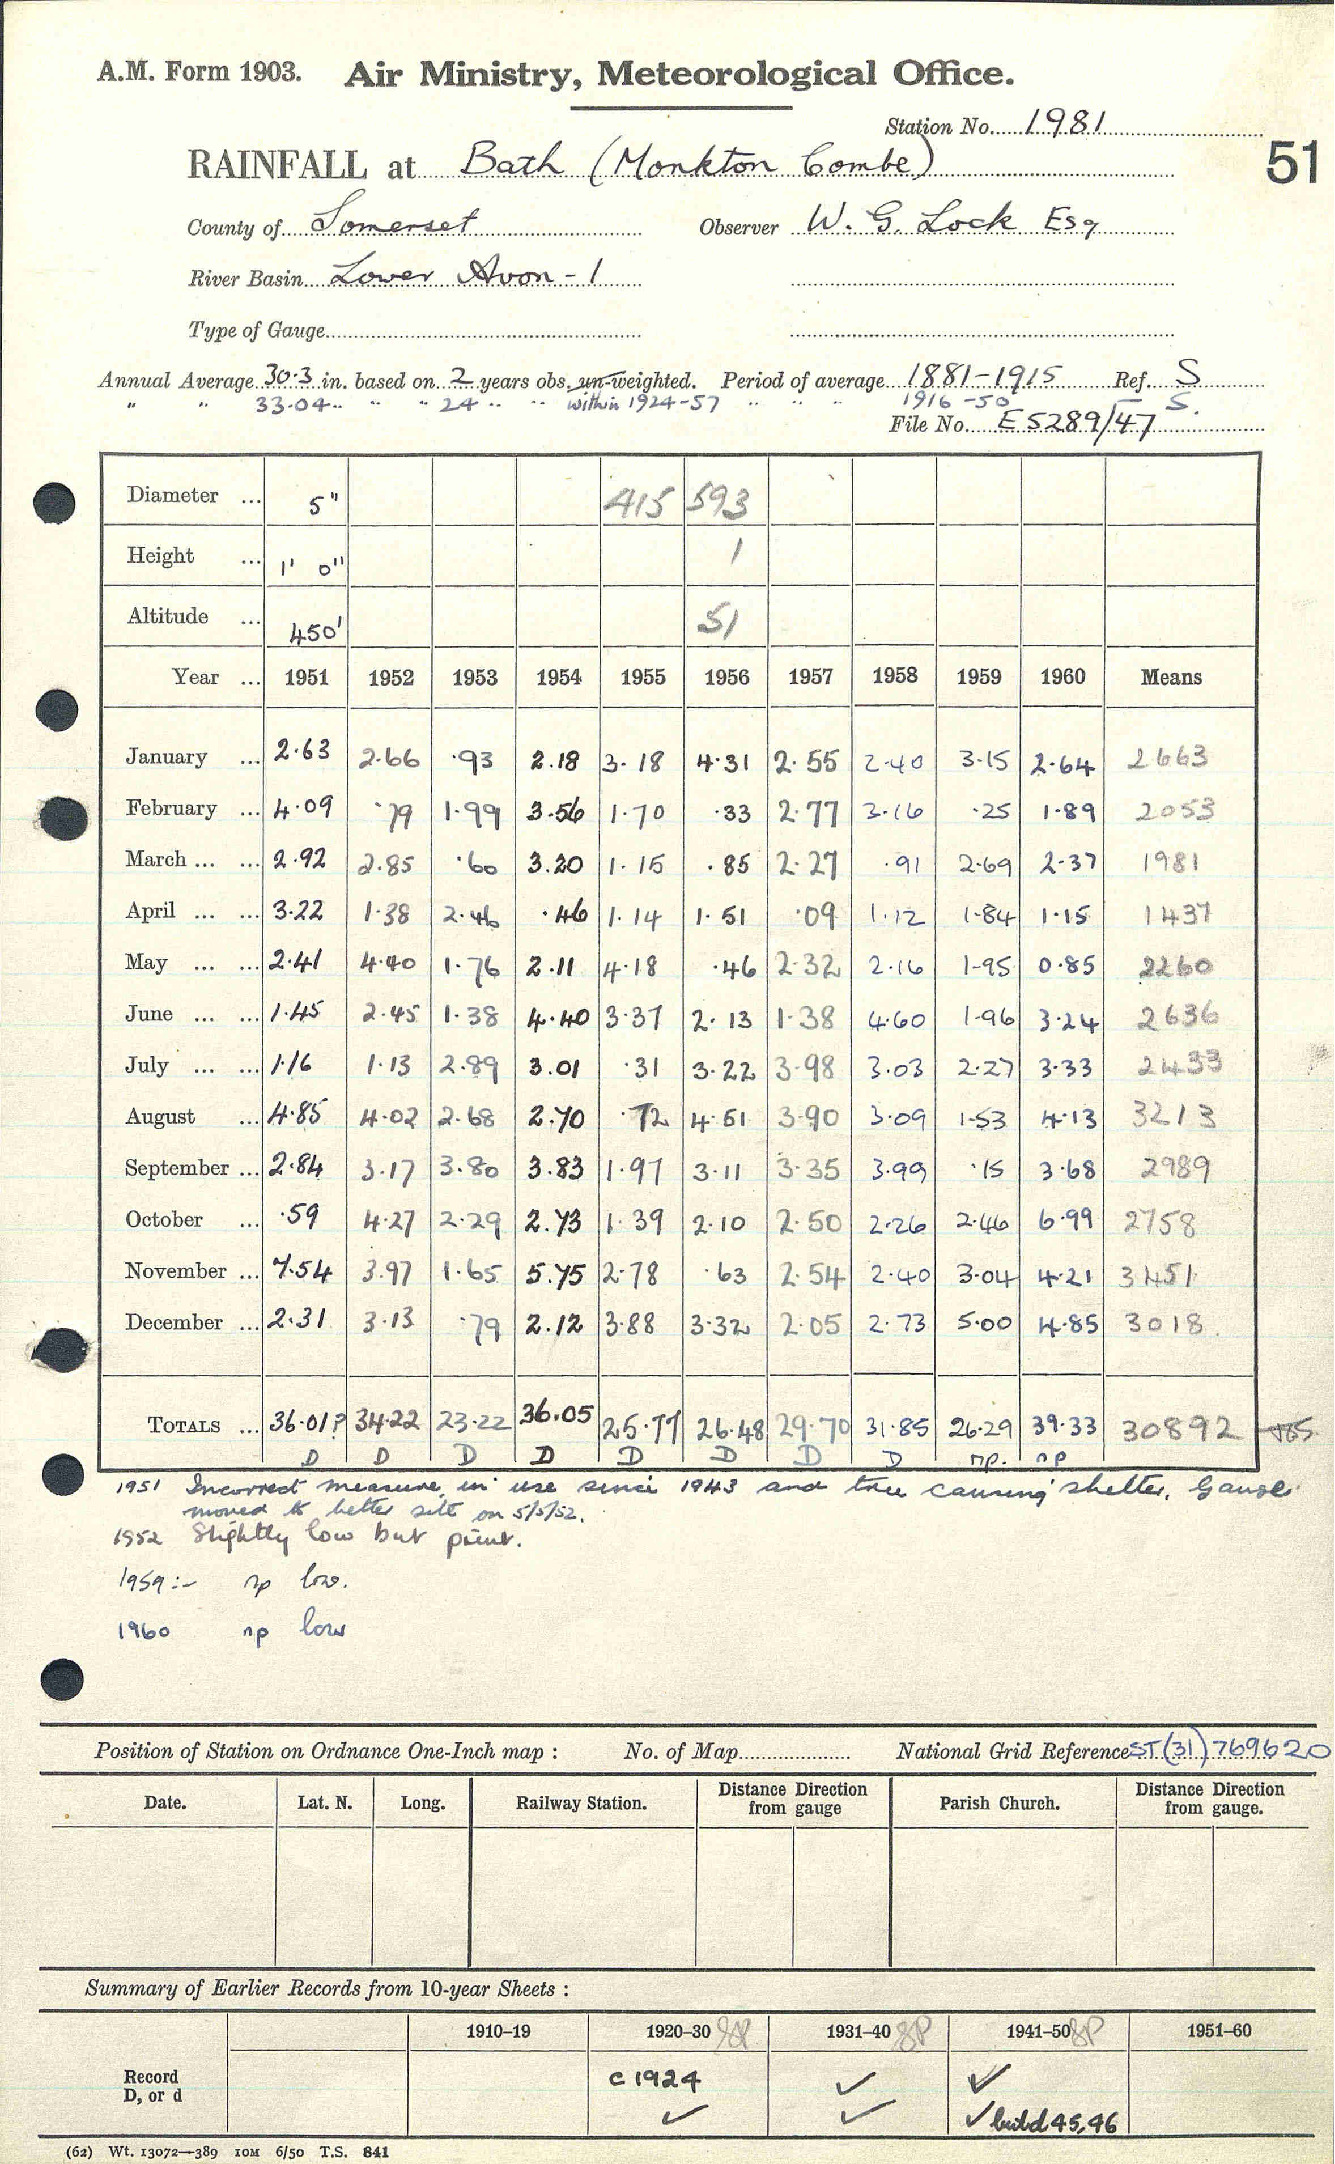 A.M. Form 1903. Air Ministry, Meteorological Office.
Station No. 1981
51
RAINFALL at Bath (Monkton Combe)
County of Somerset Observer W. G. Lock Esq
River Basin Lower Avon - 1
Type of Gauge
Annual Average 30.3 in. based on 2 years obs. un-weighted. Period of average 1881-1915 Ref. S
" " 33.04 " " 24 " " within 1924-57 " " " 1916-50 S.
File No. E5289/47
Diameter ... 5" 415 593
Height ... 1' 0" 1
Altitude ... 450' 51
Year ... 1951 1952 1953 1954 1955 1956 1957 1958 1959 1960 Means
January ... 2.63 2.66 .93 2.18 3.18 4.31 2.55 2.40 3.15 2.64 2663
February ... 4.09 .79 1.99 3.56 1.70 .33 2.77 3.16 .25 1.89 2053
March ... ... 2.92 2.85 .60 3.20 1.15 .85 2.27 .91 2.69 2.37 1981
April ... ... 3.22 1.38 2.46 .46 1.14 1.51 .09 1.12 1.84 1.15 1437
May ... ... 2.41 4.40 1.76 2.11 4.18 .46 2.32 2.16 1.95 0.85 2260
June ... ... 1.45 2.45 1.38 4.40 3.37 2.13 1.38 4.60 1.96 3.24 2636
July ... ... 1.16 1.13 2.89 3.01 .31 3.22 3.98 3.03 2.27 3.33 2433
August ... 4.85 4.02 2.68 2.70 .72 4.51 3.90 3.09 1.53 4.13 3213
September ... 2.84 3.17 3.80 3.83 1.97 3.11 3.35 3.99 .15 3.68 2989
October ... .59 4.27 2.29 2.73 1.39 2.10 2.50 2.26 2.46 6.99 2758
November ... 7.54 3.97 1.65 5.75 2.78 .63 2.54 2.40 3.04 4.21 3451
December ... 2.31 3.13 .79 2.12 3.88 3.32 2.05 2.73 5.00 4.85 3018
TOTALS ... 36.01? 34.22 23.22 36.05 25.77 26.48 29.70 31.85 26.29 39.33 30892
D D D D D D D D np. np
1951 Incorrect measure in use since 1943 and tree causing shelter. Gauge
moved to better site on 5/5/52.
1952 Slightly low but print.
1959 :- np low.
1960 np low
Position of Station on Ordnance One-Inch map : No. of Map National Grid Reference ST(31)769620
Date. Lat. N. Long. Railway Station. Distance Direction from gauge Parish Church. Distance Direction from gauge.
Summary of Earlier Records from 10-year Sheets :
1910-19 1920-30 1931-40 1941-50 1951-60
Record c 1924 ✓ ✓
D, or d ✓ ✓ ✓ but d 45, 46
(62) Wt. 13072—389 10M 6/50 T.S. 841